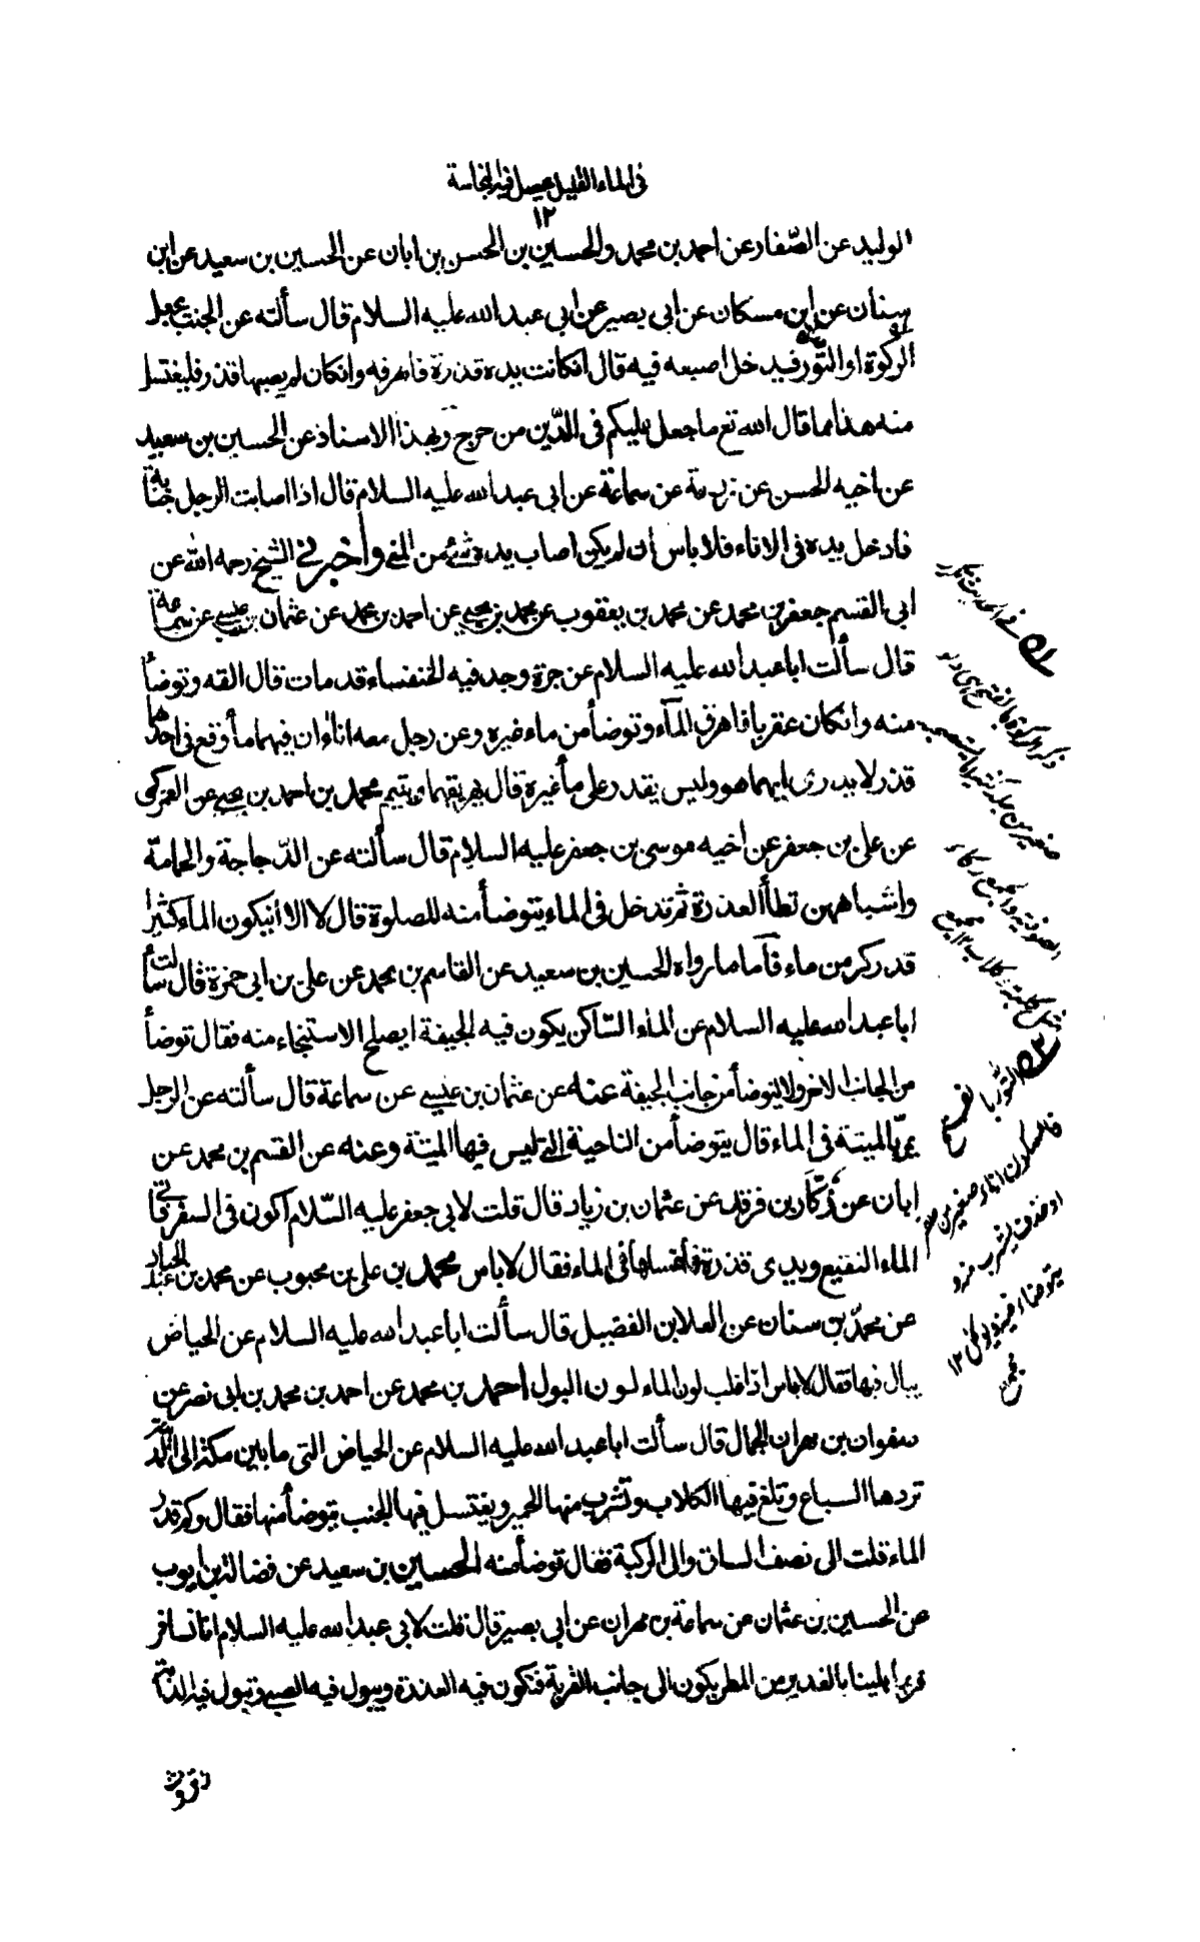 في الماء القليل يحصل فيه النجاسة
١٢
الوليد عن الصّفار عن احمد بن محمد والحسين بن الحسن بن ابان عن الحسين بن سعيد عن ابن
سنان عن ابن مسكان عن ابى بصير عن ابى عبد الله عليه السلام قال سألته عن الجنب يجعل
الركوة او التّور فيدخل اصبعه فيه قال انكانت يده قذرة فاهرقه وانكان لم يصبها قذر فليغتسل
منه هذا مما قال الله تع ما جعل عليكم فى الدّين من حرج وبهذا الاسناد عن الحسين بن سعيد
عن اخيه الحسن عن زرعة عن سماعة عن ابى عبد الله عليه السلام قال اذا اصابت الرجل جنابة
فادخل يده فى الاناء فلا باس ان لم يكن اصاب يده شئ من المنى واخبرنى الشيخ رحمه الله عن
ابى القسم جعفر بن محمد عن محمد بن يعقوب عن محمد بن يحيى عن احمد بن محمد عن عثمان بن عيسى عن سماعة
قال سألت ابا عبد الله عليه السلام عن جرة وجد فيه الخنفساء قد مات قال القه وتوضأ
منه وانكان عقربا فاهرق المآء وتوضأ من ماء غيره وعن رجل معه اناءان فيهما مأ وقع فى احدهما
قذر لا يدرى ايهما هو وليس يقدر على مأ غيره قال يهريقهما ويتيمم محمد بن احمد بن يحيى عن العمركى
عن على بن جعفر عن اخيه موسى بن جعفر عليه السلام قال سألته عن الدّجاجة والحمامة
واشباههن تطأ العذرة ثم تدخل فى الماء يتوضأ منه للصلوة قال لا الا ان يكون المآء كثيرا
قدر كر من ماء فآما ما رواه الحسين بن سعيد عن القاسم بن محمد عن على بن ابى حمزة قال سألت
ابا عبد الله عليه السلام عن الماء السّاكن يكون فيه الجيفة ايصلح الاستنجاء منه فقال توضأ
من الجانب الاخر ولا تتوضأ من جانب الجيفة عنه عن عثمان بن عيسى عن سماعة قال سألته عن الرجل
يمرّ بالميتة فى الماء قال يتوضأ من الناحية التى ليس فيها الميتة وعنه عن القسم بن محمد عن
ابان عن زكّار بن فرقد عن عثمان بن زياد قال قلت لابى جعفر عليه السّلام اكون فى السفر فآتى
الماء النقيع ويدى قذرة فأغمسها فى الماء فقال لا باس محمد بن على بن محبوب عن محمد بن عبد الجبار
عن محمّد بن سنان عن العلا بن الفضيل قال سألت ابا عبد الله عليه السلام عن الحياض
يبال فيها فقال لا باس اذا غلب لون الماء لون البول احمد بن محمد عن احمد بن محمد بن ابى نصر عن
صفوان بن مهران الجمال قال سألت ابا عبد الله عليه السلام عن الحياض التى ما بين مكة الى المدينة
تردها السباع وتلغ فيها الكلاب وتشرب منها الحمير ويغتسل فيها الجنب يتوضأ منها فقال وكم قدر
الماء قلت الى نصف الساق والى الركبة فقال توضأ منه الحسين بن سعيد عن فضالة بن ايوب
عن الحسين بن عثمان عن سماعة بن مهران عن ابى بصير قال قلت لابى عبد الله عليه السلام انا نسافر
فربما بلينا بالغدير من المطر يكون الى جانب القرية فتكون فيه العذرة ويبول فيه الصبى وتبول فيه الدابّة
وتروث
التّور بالفتح
فالسكون اناء صغير من صفر
او خذف يشرب منه و
يتوضاء فيه ويوكل ١٢
مجمع